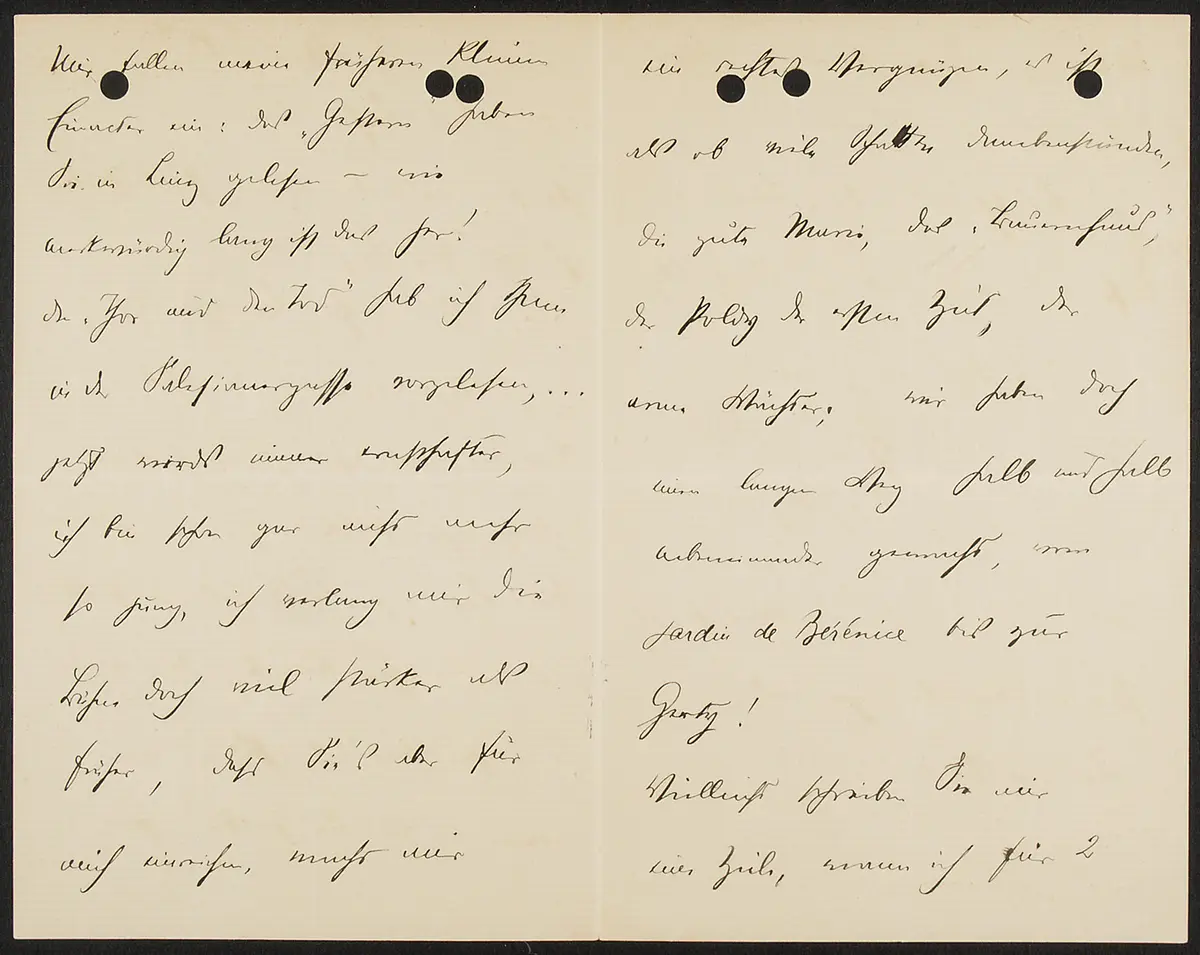 Mir fallen meine früheren kleinen
Einacter ein: das „Gestern“ haben
Sie in Linz gelesen – wie
merkwürdig lang ist das her!
den „Thor und den Tod“ hab ich Ihnen
in der Salesianergasse vorgelesen, ...
jetzt wirds immer ernsthafter,
ich bin schon gar nicht mehr
so jung, ich verlang mir die
Bühne doch viel stärker als
früher, dass Sie's aber für
mich einreichen, macht mir
ein rechtes Vergnügen, es ist
als ob viele Schatten danebenstünden,
die gute Marie, das „Bauernhaus“,
der Poldy der ersten Zeit, der
arme Wächter; wir haben doch
einen langen Weg halb und halb
nebeneinander gemacht, vom
jardin de Bérénice bis zur
Gerty!
Vielleicht schreiben Sie mir
eine Zeile, wann ich für 2